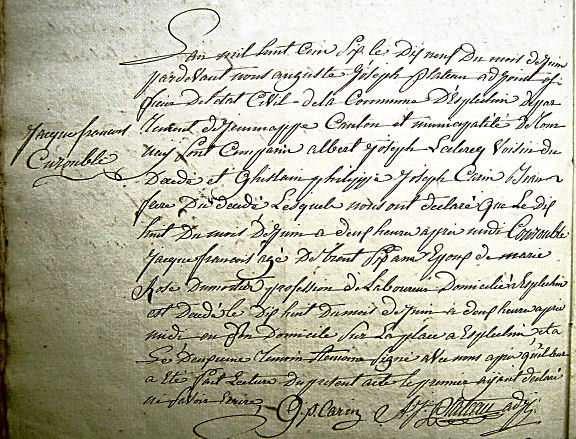 L'an mil huit cent six le dix neuf du mois de juin
pardevant nous auguste Joseph Plateau adjoint of
ficier de l'état Civil de la Commune D'Esplechin depar
tement de Jemmappe Canton et municipalité de Tour
nay sont Comparu albert joseph Leclercq Voisin du
Jacque francois
Décédé et Ghislain philippe Joseph Carin
Couroublé
frere du décédé Lesquels nous ont declaré que le dix
huit du mois de juin a deux heure apres midi Couroublé
Jacque francois agé De trent six ans Epoux de marie
Rose Dumortier profession de Laboureur Domicilié a Esplechin
est Décédé le dix huit du mois de juin a deux heure apres
midi en son Domicile sur La place a Esplechin, et a
Les deux temoin signé avec nous apres qu'il leur
a Eté fait Lecture Du present acte le premier ayant declaré
ne savoir Ecrire, G. p. Carin A. J. Plateau adj.